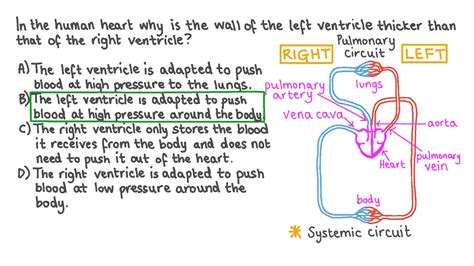 In the human heart why is the wall of the left ventricle thicker than
that of the right ventricle?
A) The left ventricle is adapted to push
blood at high pressure to the lungs.
B) The left ventricle is adapted to push
blood at high pressure around the body.
C) The right ventricle only stores the blood
it receives from the body and does not
need to push it out of the heart.
D) The right ventricle is adapted to push
blood at low pressure around the
body.
Pulmonary
Circuit
RIGHT
LEFT
lungs
pulmonary
artery
vena cava
aorta
Heart
pulmonary
vein
body
* Systemic circuit